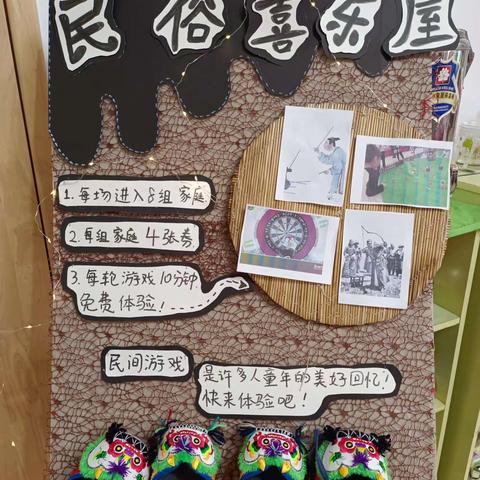 民俗喜乐屋
1.每场进入8组家庭
2.每组家庭4张券
3.每轮游戏10分钟
免费体验!
民间游戏
是许多人童年的美好回忆!
快来体验吧!